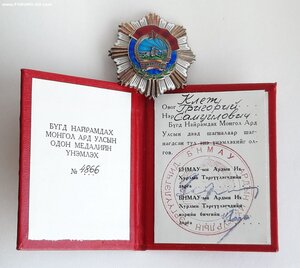 БҮГД НАЙРАМДАХ
МОНГОЛ АРД УЛСЫН
ОДОН МЕДАЛИЙН
ҮНЭМЛЭХ
№ 4866
Овог Клет
Григорий
Нэр Самуилович
Бүгд Найрамдах Монгол Ард
Улсын дээд шагналаар шаг-
нагдсан тул энэ үнэмлэхийг ол-
гов.
БНМАУ-ын Ардын Их
Хурлын Тэргүүлэгчдийн
дарга
БНМАУ-ын Ардын Их
Хурлын Тэргүүлэгчдийн
нарийн бичгийн
дарга